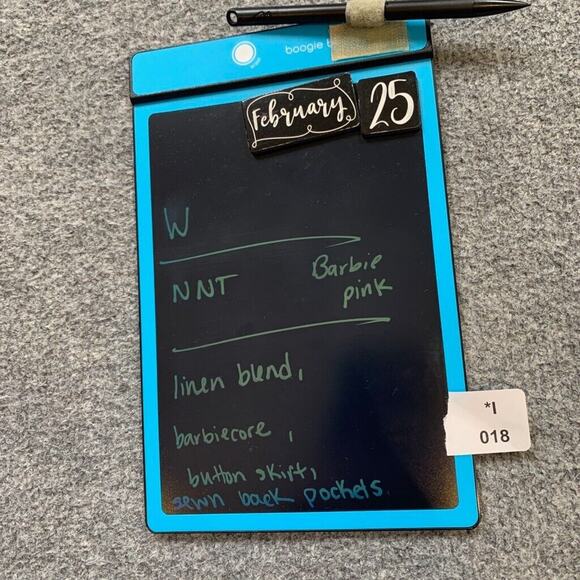 boogie
February 25
W
NNT Barbie
pink
linen blend,
barbiecore,
button skirt,
sewn back pockets
*I
018